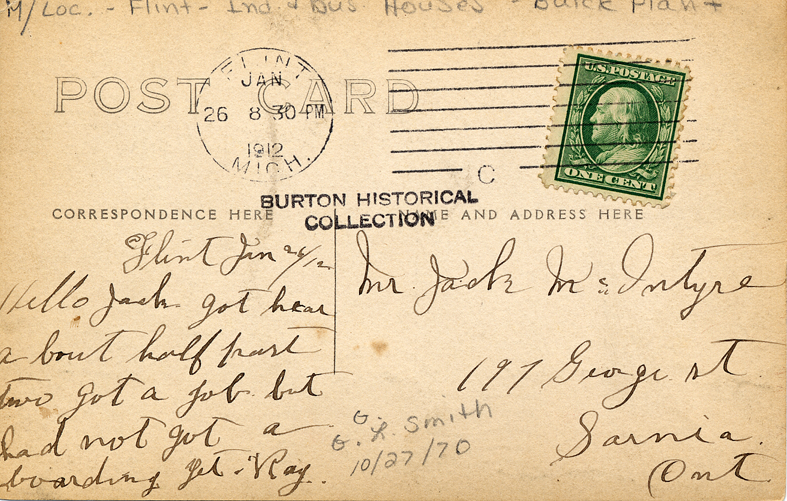 M/Loc. - Flint - Ind & Bus Houses - Buick Plant
POST CARD
FLINT
JAN
26 8 30 PM
1912
MICH.
C
U.S. POSTAGE
ONE CENT
BURTON HISTORICAL
COLLECTION
CORRESPONDENCE HERE
NAME AND ADDRESS HERE
Flint Jan 26/12
Hello Jack got hear
a bout half past
two got a job but
had not got a
boarding yet. Ray.
Mr. Jack McIntyre
197 George st
Sarnia.
Ont
G. L. Smith
10/27/70